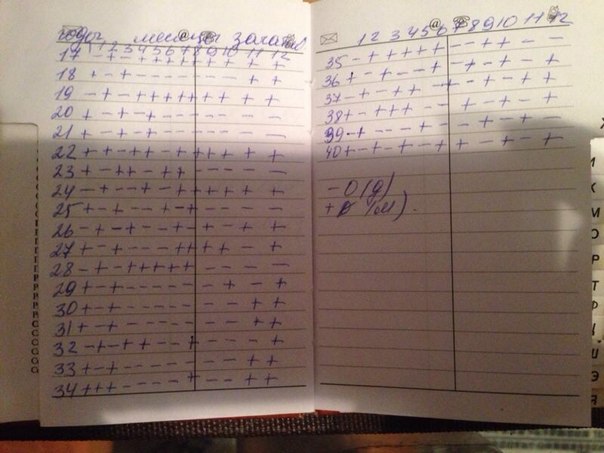 годы месяцы зачатия
1 2 3 4 5 6 7 8 9 10 11 12
17 - + - + + + + + + + + +
18 + - + - - - - - - - + +
19 - + - + + + + + + + + +
20 + - + - - - - - - - - -
21 + - - - - - - - - - - -
22 + + - + - - + + + + + +
23 + - + + - + + - - - - -
24 + - + - - + + + + + + +
25 + - + - - + - + - - - -
26 - + - + - - + - + - + +
27 + - + - - - + + + + - +
28 - + - + + + + + - - - -
29 + - + - - - - - - + - +
30 + - + - - - - - - - + +
31 + - + - - - - - - - + +
32 - + - + + - - + - - - +
33 + - + - - - - - - - + +
34 + + + - - - - + - - + +
1 2 3 4 5 6 7 8 9 10 11 12
35 - + + + + + - - + + - -
36 + - + - - + - + - + - +
37 - + - + + - + - + - + -
38 + - + + + - - + - + - +
39 - + - - - + - - + - + -
40 + - + - + - + + - + - +
- О (д)
+ (м).
И
К
М
О
Р
Т
Ф
Ц
Ш
Э
Я